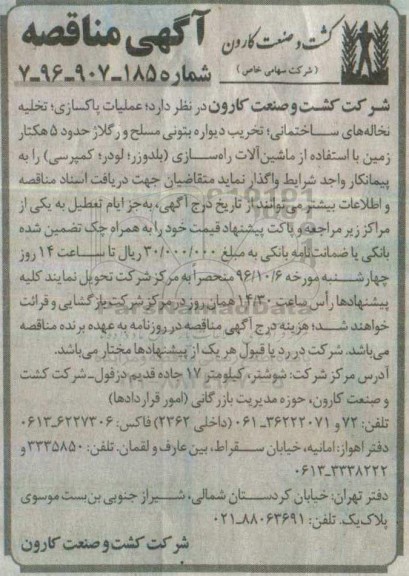 کشت و صنعت کارون
(شرکت سهامی خاص)
آگهی مناقصه
شماره ۱۸۵-۹۰۷-۹۶-۷
شرکت کشت و صنعت کارون در نظر دارد؛ عملیات پاکسازی؛ تخلیه
نخاله‌های ساختمانی؛ تخریب دیواره بتونی مسلح و رگلاژ حدود ۵ هکتار
زمین با استفاده از ماشین‌آلات راه‌سازی (بلدوزر؛ لودر؛ کمپرسی) را به
پیمانکار واجد شرایط واگذار نماید متقاضیان جهت دریافت اسناد مناقصه
و اطلاعات بیشتر می‌توانند از تاریخ درج آگهی، به‌جز ایام تعطیل به یکی از
مراکز زیر مراجعه و پاکت پیشنهاد قیمت خود را به همراه چک تضمین شده
بانکی یا ضمانت‌نامه بانکی به مبلغ ۳۰/۰۰۰/۰۰۰ ریال تا ساعت ۱۴ روز
چهارشنبه مورخه ۹۶/۱۰/۶ منحصراً به مرکز شرکت تحویل نمایند کلیه
پیشنهادها رأس ساعت ۱۴:۳۰ همان روز در مرکز شرکت بازگشایی و قرائت
خواهند شد؛ هزینه درج آگهی مناقصه در روزنامه به عهده برنده مناقصه
می‌باشد. شرکت در رد یا قبول هر یک از پیشنهادها مختار می‌باشد.
آدرس مرکز شرکت: شوشتر، کیلومتر ۱۷ جاده قدیم دزفول-شرکت کشت
و صنعت کارون، حوزه مدیریت بازرگانی (امور قراردادها)
تلفن: ۷۲ و ۳۶۲۲۲۰۷۱-۰۶۱ (داخلی ۲۳۶۲) فاکس: ۶۲۲۷۳۰۶-۰۶۱۳
دفتر اهواز: امانیه، خیابان سقراط، بین عارف و لقمان. تلفن: ۳۳۳۵۸۵۰ و
۳۳۳۸۲۲۲-۰۶۱۳
دفتر تهران: خیابان کردستان شمالی، شیراز جنوبی بن‌بست موسوی
پلاک یک. تلفن: ۸۸۰۶۳۶۹۱-۰۲۱
شرکت کشت و صنعت کارون